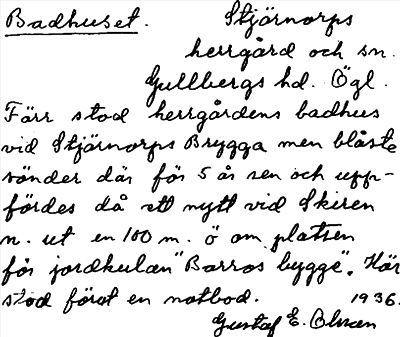 Badhuset. Stjärnorps
herrgård och sn.
Gullbergs hd. Ögl.
Förr stod herrgårdens badhus
vid Stjärnorps Brygga men blåste
sönder där för 5 år sen och upp-
fördes då ett nytt vid Skiren
n. ut en 100 m. ö om platsen
för jordkulan "Barros bygge". Här
stod förut en notbod. 1936.
Gustaf E. Olsson